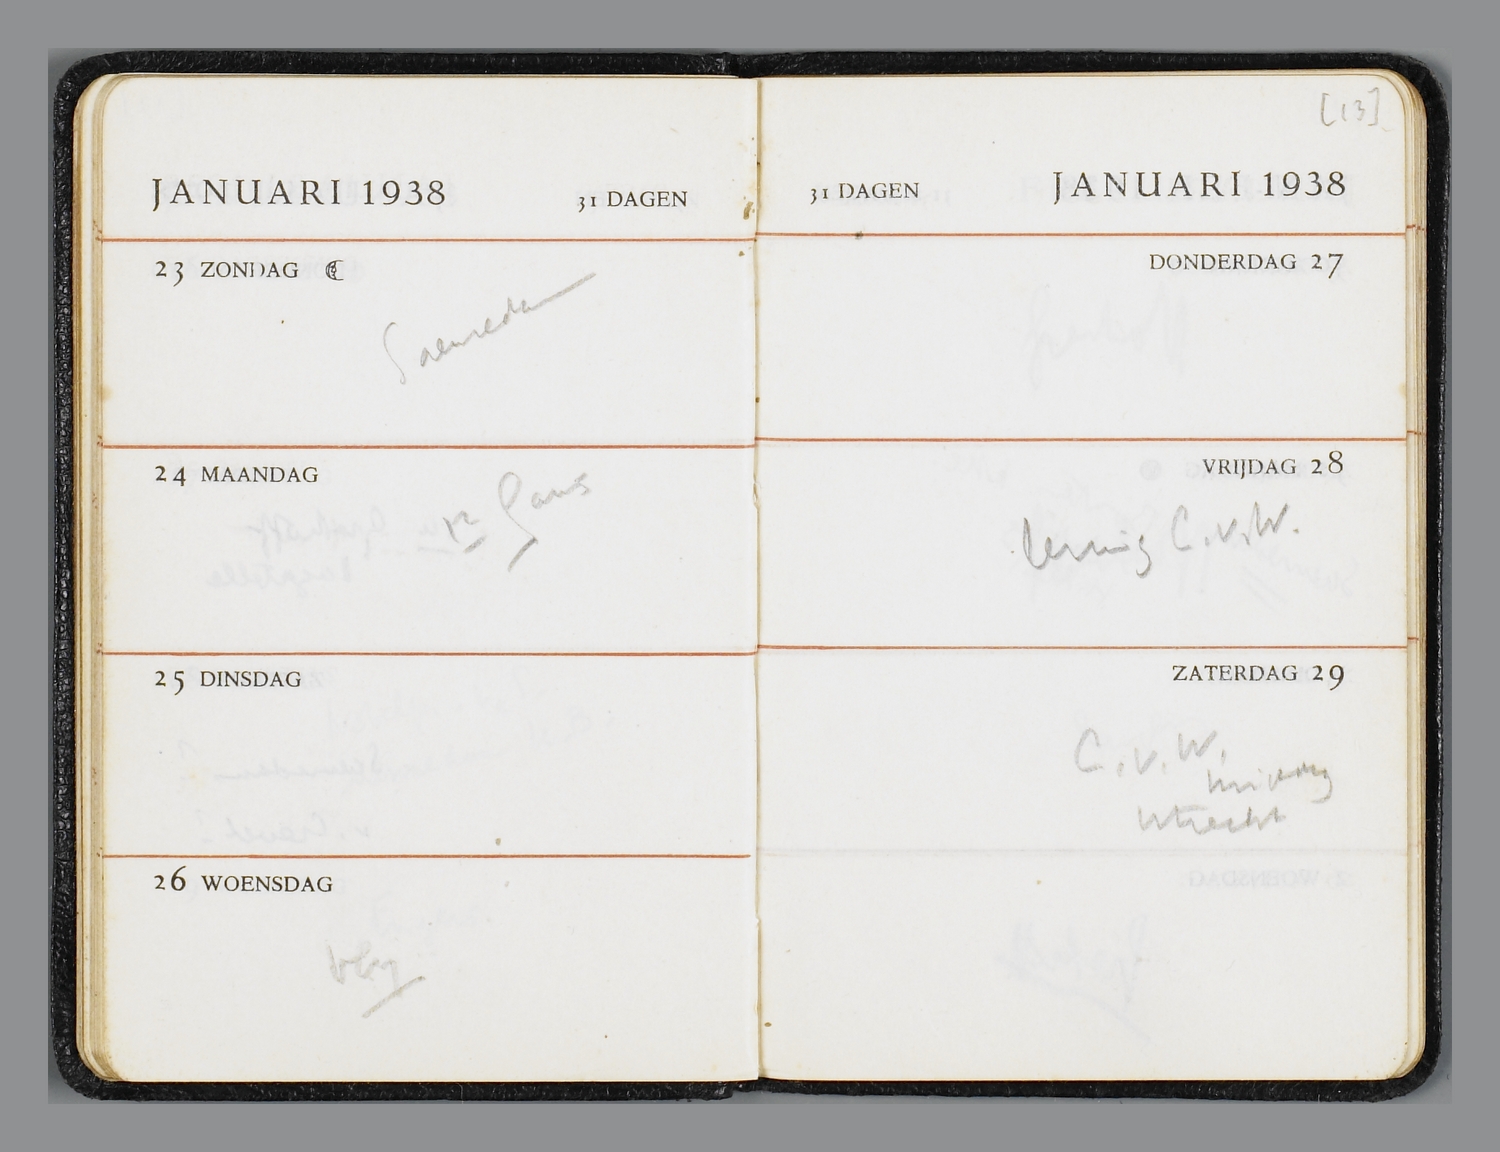 JANUARI 1938 31 DAGEN
23 ZONDAG
Saenredam
24 MAANDAG
25 DINSDAG
26 WOENSDAG
[13]
31 DAGEN JANUARI 1938
DONDERDAG 27
VRIJDAG 28
C.v.W.
ZATERDAG 29
C.v.W.
Utrecht